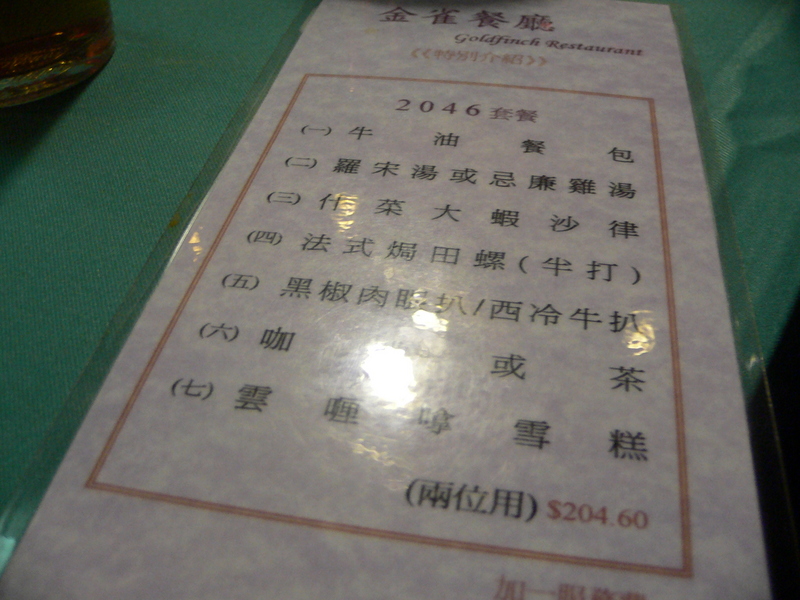 金雀餐廳
Goldfinch Restaurant
《《特別介紹》》
2046套餐
(一) 牛油餐包
(二) 羅宋湯或忌廉雞湯
(三) 什菜大蝦沙律
(四) 法式焗田螺(半打)
(五) 黑椒肉眼扒/西冷牛扒
(六) 咖或茶
(七) 雲喱嗱雪糕
(兩位用) $204.60
加一服務費